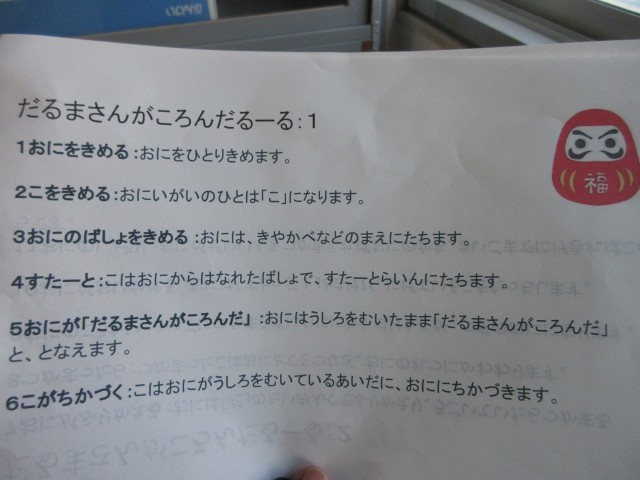 だるまさんがころんだるーる：1
1おにをきめる：おにをひとりきめます。
2こをきめる：おにいがいのひとは「こ」になります。
3おにのばしょをきめる：おには、きやかべなどのまえにたちます。
4すたーと：こはおにからはなれたばしょで、すたーとらいんにたちます。
5おにが「だるまさんがころんだ」：おにはうしろをむいたまま「だるまさんがころんだ」
と、となえます。
6こがちかづく：こはおにがうしろをむいているあいだに、おににちかづきます。
福